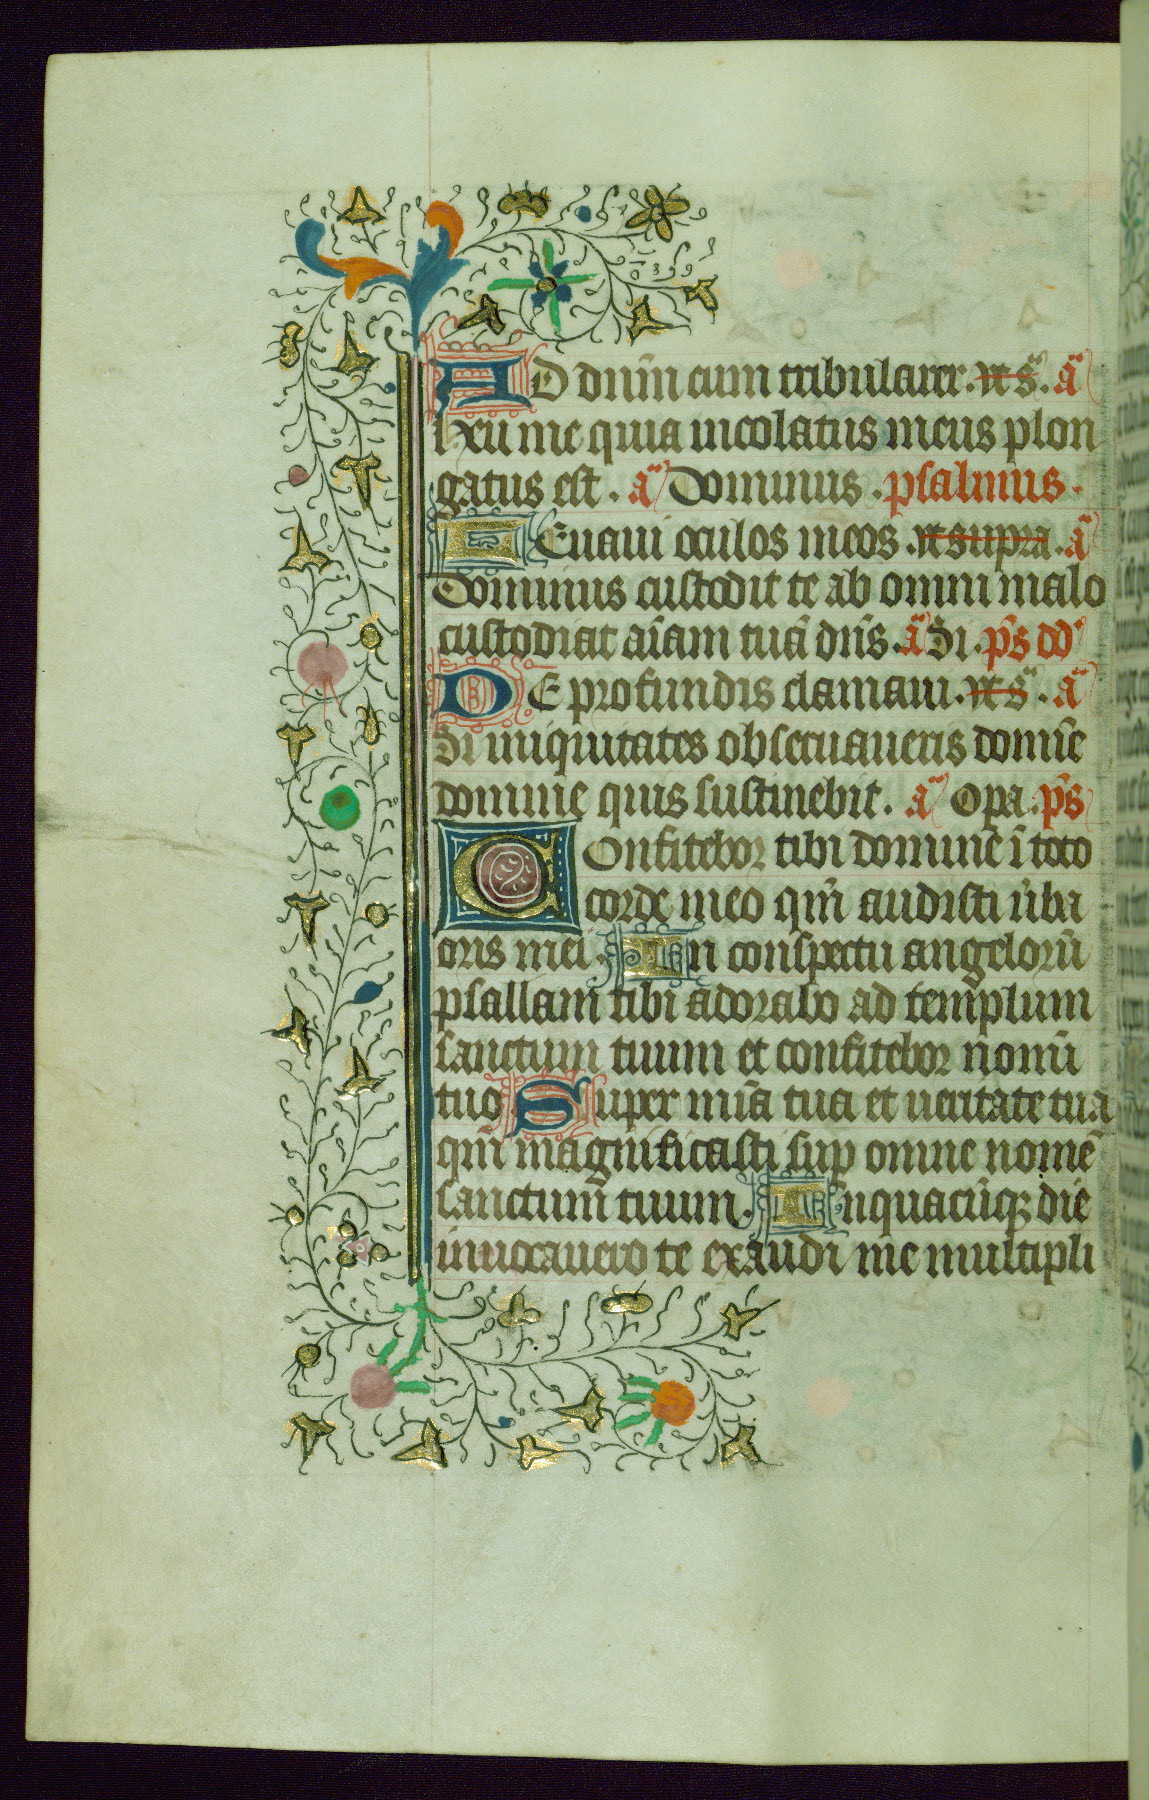 AD dn̄m cum tribularer. vt s̄. añ
hxu me quia incolatus meus plon
gatus est. añ Dominus. psalmus.
LEuaui oculos meos. vt supra. añ
Dominus custodit te ab omni malo
custodiat aīam tuā dn̄s. añ Si. p̄s dd
DE profundis clamaui. vt s̄. añ
Si iniquitates obseruaueris domīe
domine quis sustinebit. añ Opa. p̄s
Confitebor tibi domine ī toto
corde meo qm̄ audisti ūba
oris mei. In conspectu angelorū
psallam tibi adorabo ad templum
sanctum tuum et confitebor nomī
tuo Super mīa tua et ueritate tua
qm̄ magnificasti sup omne nomē
sanctum tuum. Inquacūqꝫ die
inuocauero te exaudi me multipli